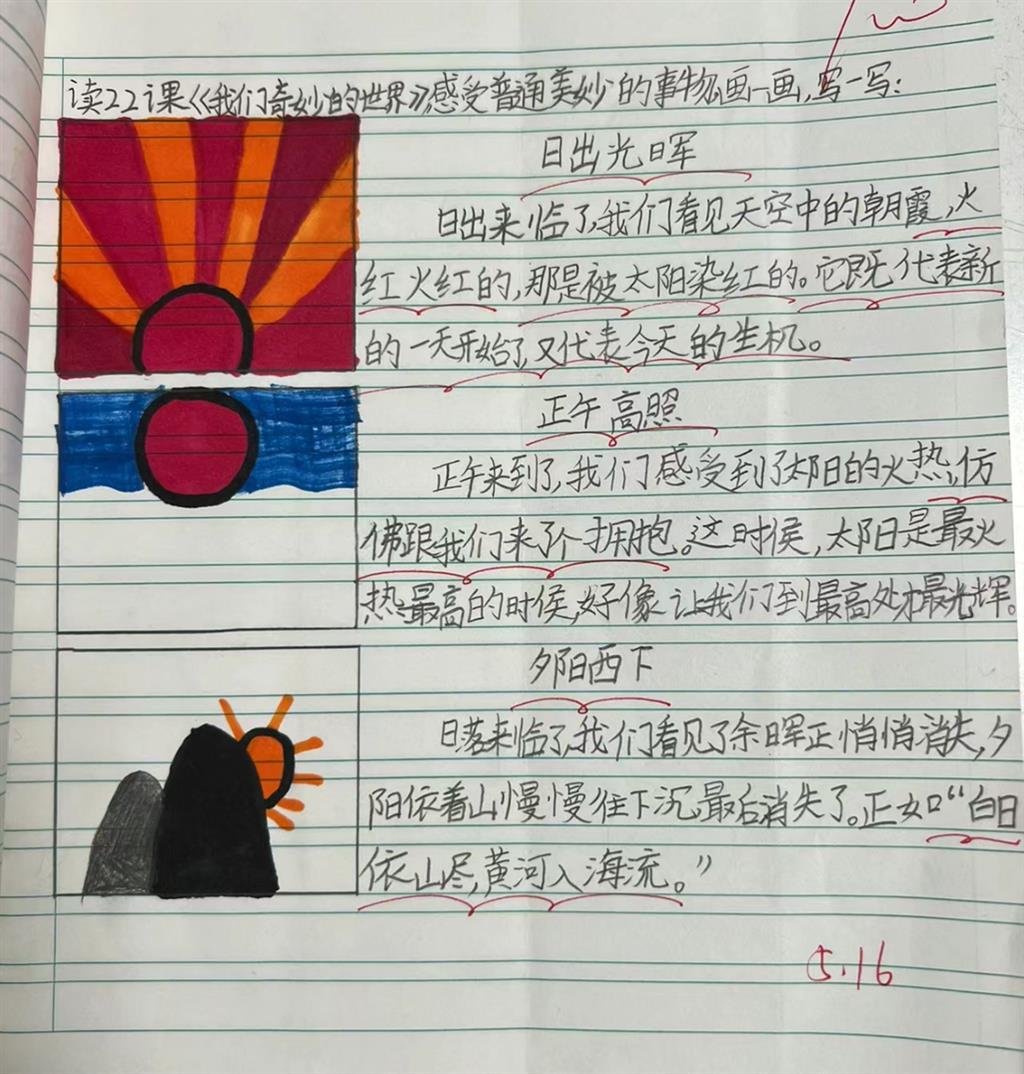 读22课《我们奇妙的世界》,感受普通美妙的事物,画一画,写一写:
日出光晖
日出来临了,我们看见天空中的朝霞,火
红火红的,那是被太阳染红的。它既代表新
的一天开始了,又代表今天的生机。
正午高照
正午来到了,我们感受到了烈日的火热,仿
佛跟我们来了个拥抱。这时侯,太阳是最火
热最高的时侯,好像让我们到最高处才最光辉。
夕阳西下
日落来临了,我们看见了余晖正悄悄消失,夕
阳依着山慢慢往下沉,最后消失了。正如“白日
依山尽,黄河入海流。”
5.16